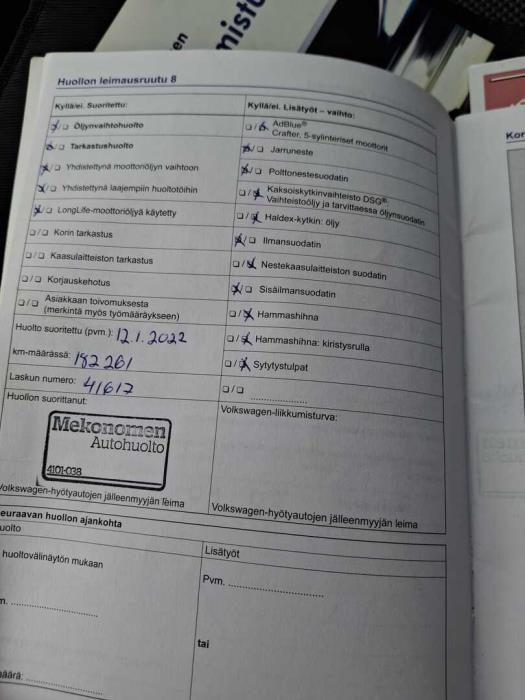 en
mistu
Huollon leimausruutu 8
Kyllä/ei. Suoritettu:
Öljynvaihtohuolto
Tarkastushuolto
Yhdistettynä moottoriöljyn vaihtoon
Yhdistettynä laajempiin huoltotöihin
LongLife-moottoriöljyä käytetty
Korin tarkastus
Kaasulaitteiston tarkastus
Korjauskehotus
Asiakkaan toivomuksesta
(merkintä myös työmääräykseen)
Huolto suoritettu (pvm.): 12.1.2022
km-määrässä: 182 261
Laskun numero: 41617
Huollon suorittanut:
Mekonomen
Autohuolto
4101-038
Volkswagen-hyötyautojen jälleenmyyjän leima
Kyllä/ei. Lisätyöt – vaihto:
AdBlue®
Crafter, 5-sylinteriset moottorit
Jarruneste
Polttonestesuodatin
Kaksoiskytkinvaihteisto DSG®:
Vaihteistoöljy ja tarvittaessa öljynsuodatin
Haldex-kytkin: öljy
Ilmansuodatin
Nestekaasulaitteiston suodatin
Sisäilmansuodatin
Hammashihna
Hammashihna: kiristysrulla
Sytytystulpat
Volkswagen-liikkumisturva:
Volkswagen-hyötyautojen jälleenmyyjän leima
euraavan huollon ajankohta
uolto
huoltovälinäytön mukaan
m.
määrä:
Lisätyöt
Pvm.
tai
Kor